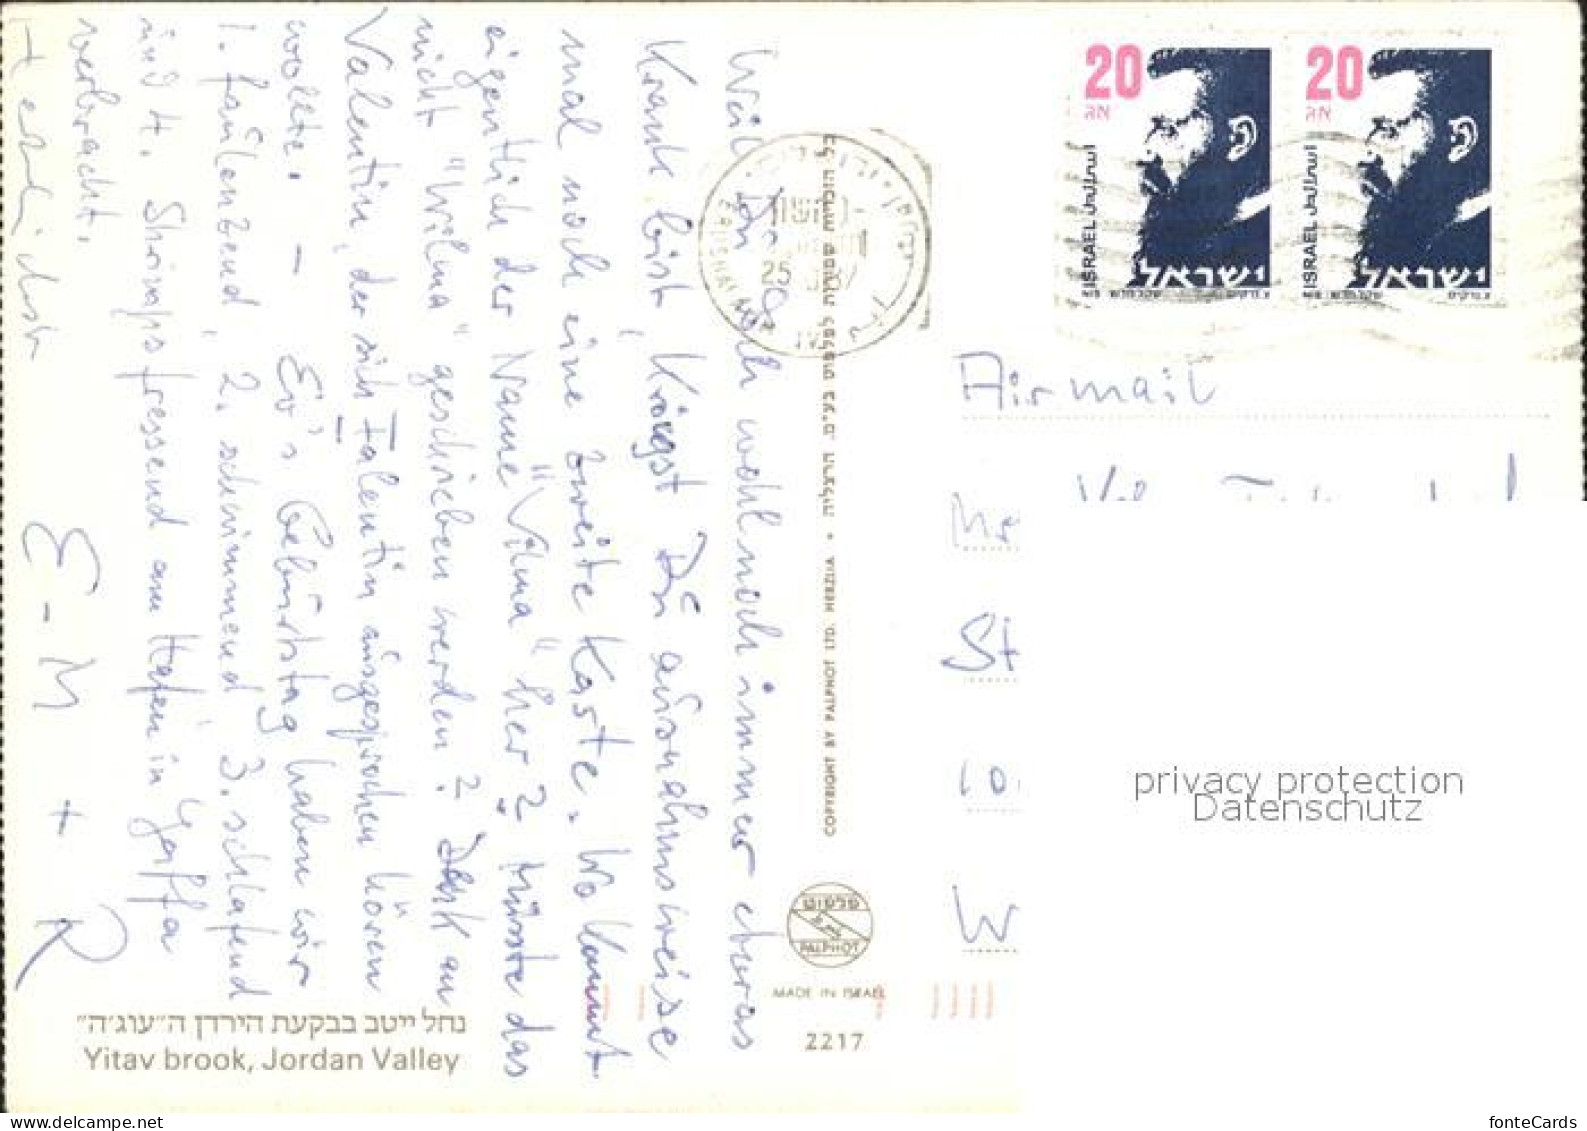 Weil Du ja doch wohl noch immer etwas
Krank bist, Kriegst Du ausnahmsweise
mal noch eine zweite Karte. Wo kommt
eigentlich der Name "Vilma" her? Müsste das
nicht "Wilma" geschrieben werden? Denk an
Valentin, der sich Falentin ausgesprochen hören
wollte. – Ev's Geburtstag haben wir
1. faulenzend, 2. schwimmend 3. schlafend
und 4. Shrimps fressend am Hafen in Yaffa
verbracht.
Herzlichst
E-M + R
נחל ייטב בבקעת הירדן ה״עוג׳ה״
Yitav brook, Jordan Valley
COPYRIGHT BY PALPHOT LTD. HERZLIA • כל הזכויות שמורות לפלפוט בע״מ. הרצליה
פלפוט
PALPHOT
MADE IN ISRAEL
2217
20
אג
ISRAEL
ישראל
20
אג
ISRAEL
ישראל
Airmail
St
W
privacy protection
Datenschutz
fonteCards